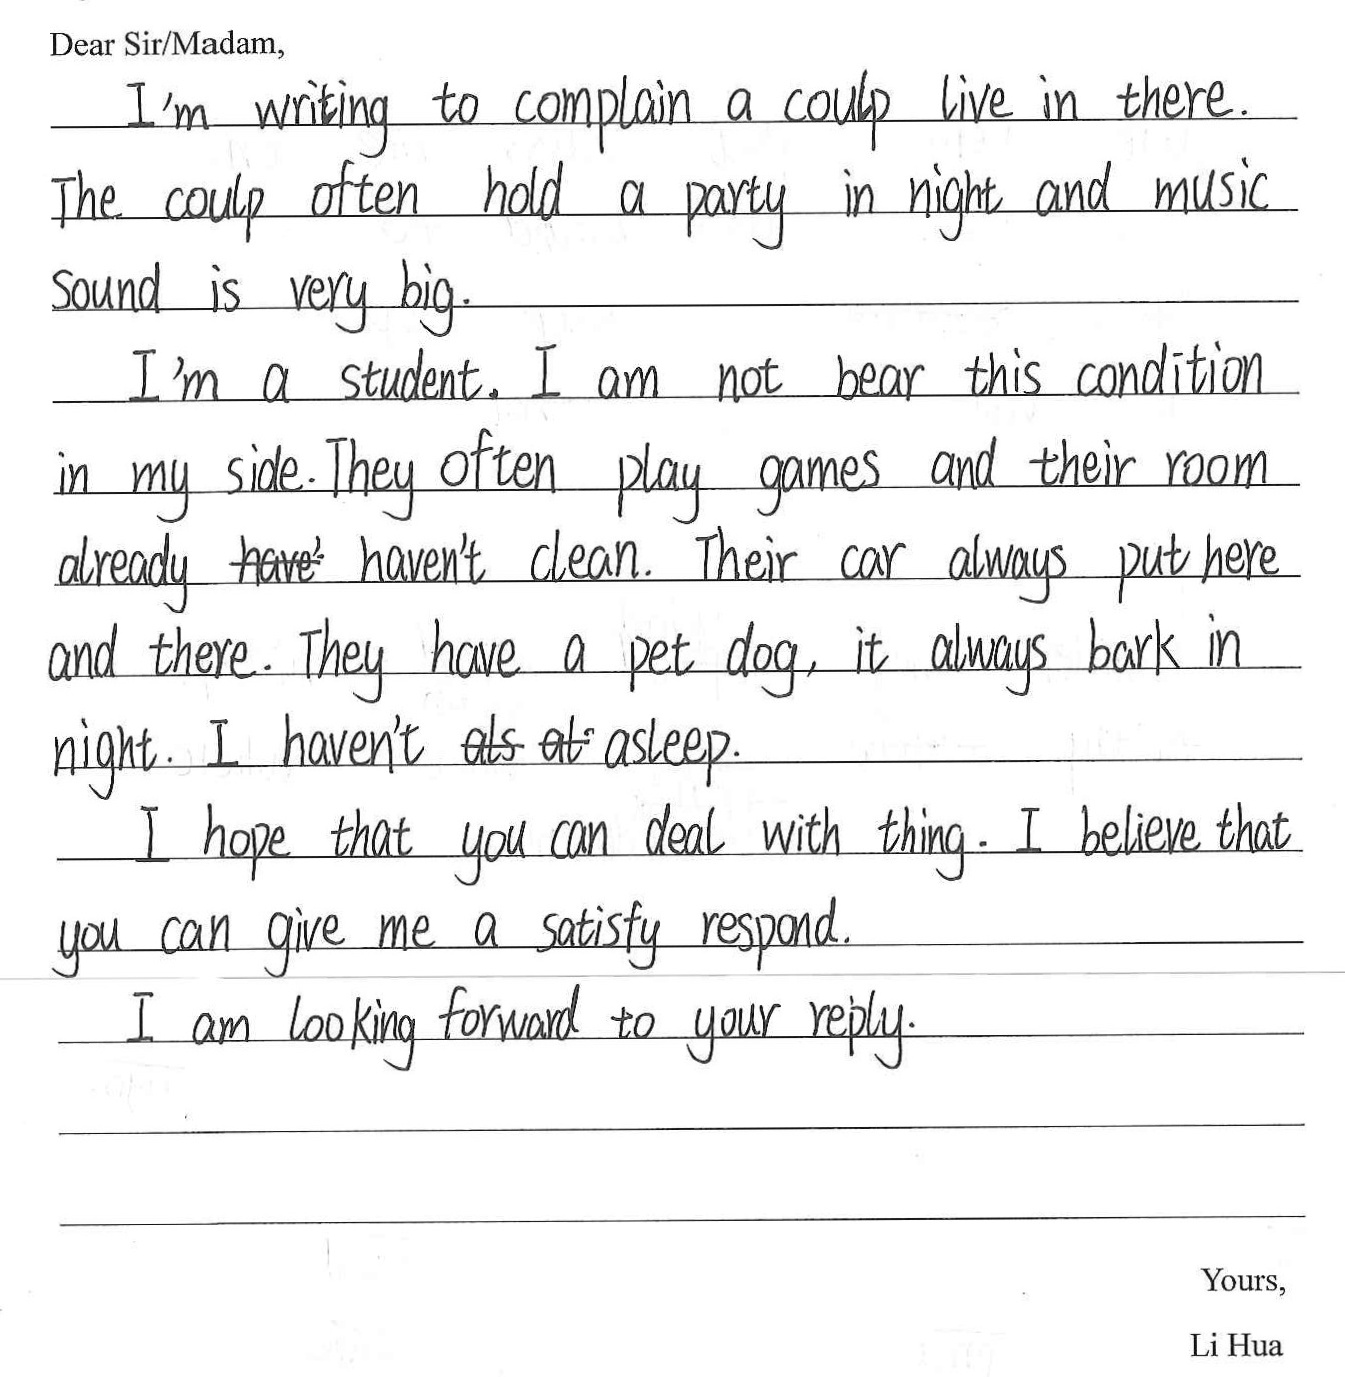 Dear Sir/Madam,
I'm writing to complain a coulp live in there.
The coulp often hold a party in night and music
sound is very big.
I'm a student. I am not bear this condition
in my side. They often play games and their room
already have' haven't clean. Their car always put here
and there. They have a pet dog, it always bark in
night. I haven't als at asleep.
I hope that you can deal with thing. I believe that
you can give me a satisfy respond.
I am looking forward to your reply.
Yours,
Li Hua